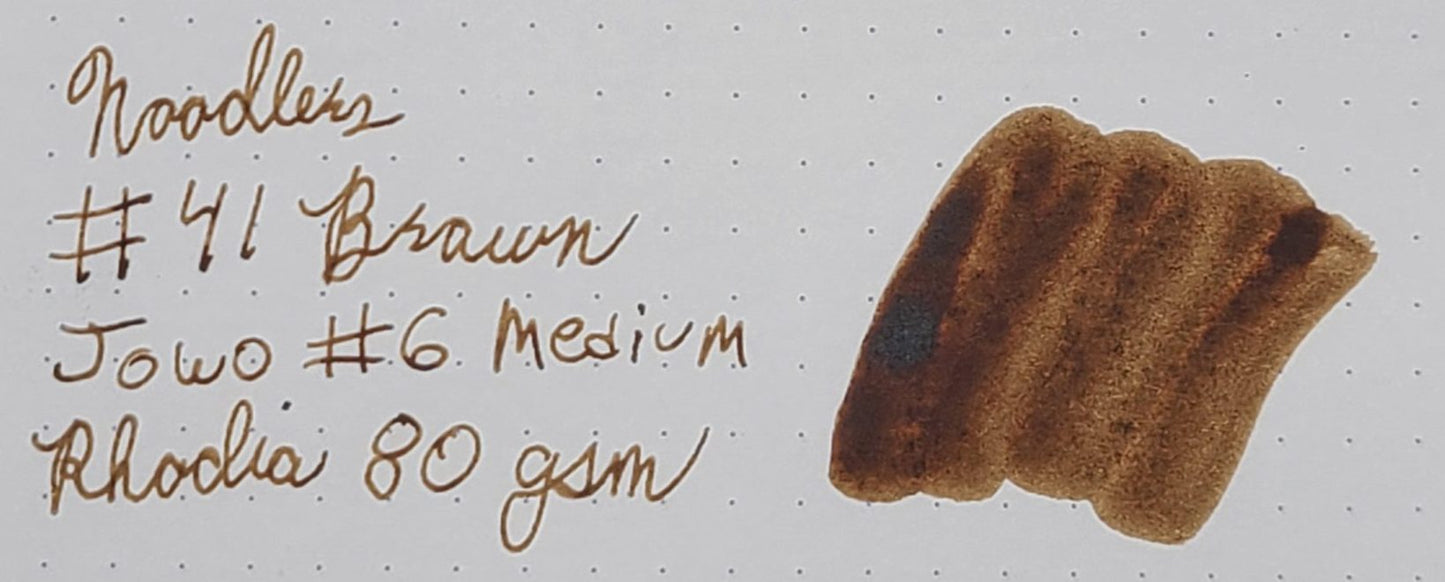 Noodlers
# 41 Brown
Jowo #6 Medium
Rhodia 80 gsm